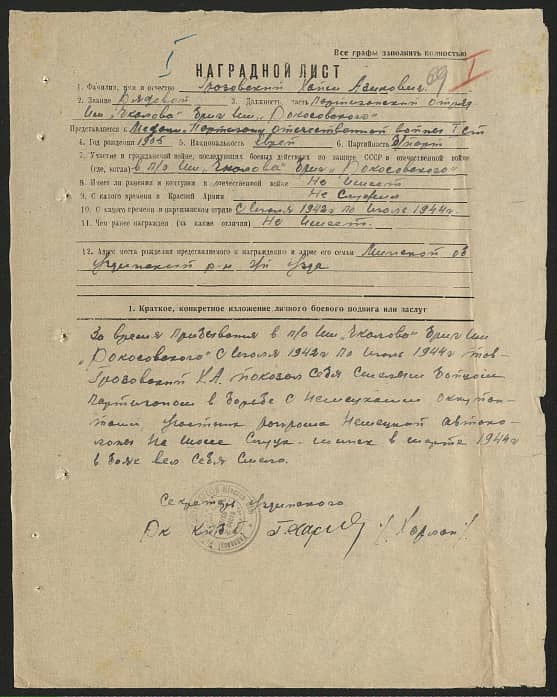 I
69 I
Все графы заполнить полностью
НАГРАДНОЙ ЛИСТ
1. Фамилия, имя и отчество Грозовский Хаим Азикович.
2. Звание Рядовой 3. Должность, часть Партизанский отряд
им „Чкалова“ Бриг им „Рокосовского“
Представляется к Медали „Партизану отечественной войны“ I ст
4. Год рождения 1905 5. Национальность Еврей 6. Партийность б/парт
7. Участие в гражданской войне, последующих боевых действиях по защите СССР и отечественной войне
(где, когда) в п/о им. „Чкалова“ Бриг „Рокосовского“
8. Имеет ли ранения и контузии в отечественной войне Не имеет
9. С какого времени в Красной Армии Не служил
10. С какого времени в партизанском отряде с Июля 1942 г по Июль 1944 г.
11. Чем ранее награжден (за какие отличия) Не имеет.
12. Адрес места рождения представляемого к награждению и адрес его семьи Минской об
Узденский р-н Узда
1. Краткое, конкретное изложение личного боевого подвига или заслуг
За время пребывания в п/о им „Чкалова“ Бриг им
„Рокосовского“ с Июля 1942г по Июль 1944г тов-
Грозовский Х.А. показал себя смелым бойцом
партизаном в борьбе с немецкими оккупан-
тами, участник разгрома немецкой автоко-
лоны на шоссе Слуцк-Минск в марте 1944г
в боях вел себя смело.
Секретарь Узденского
Рк КП/б/Б /Харлан/.